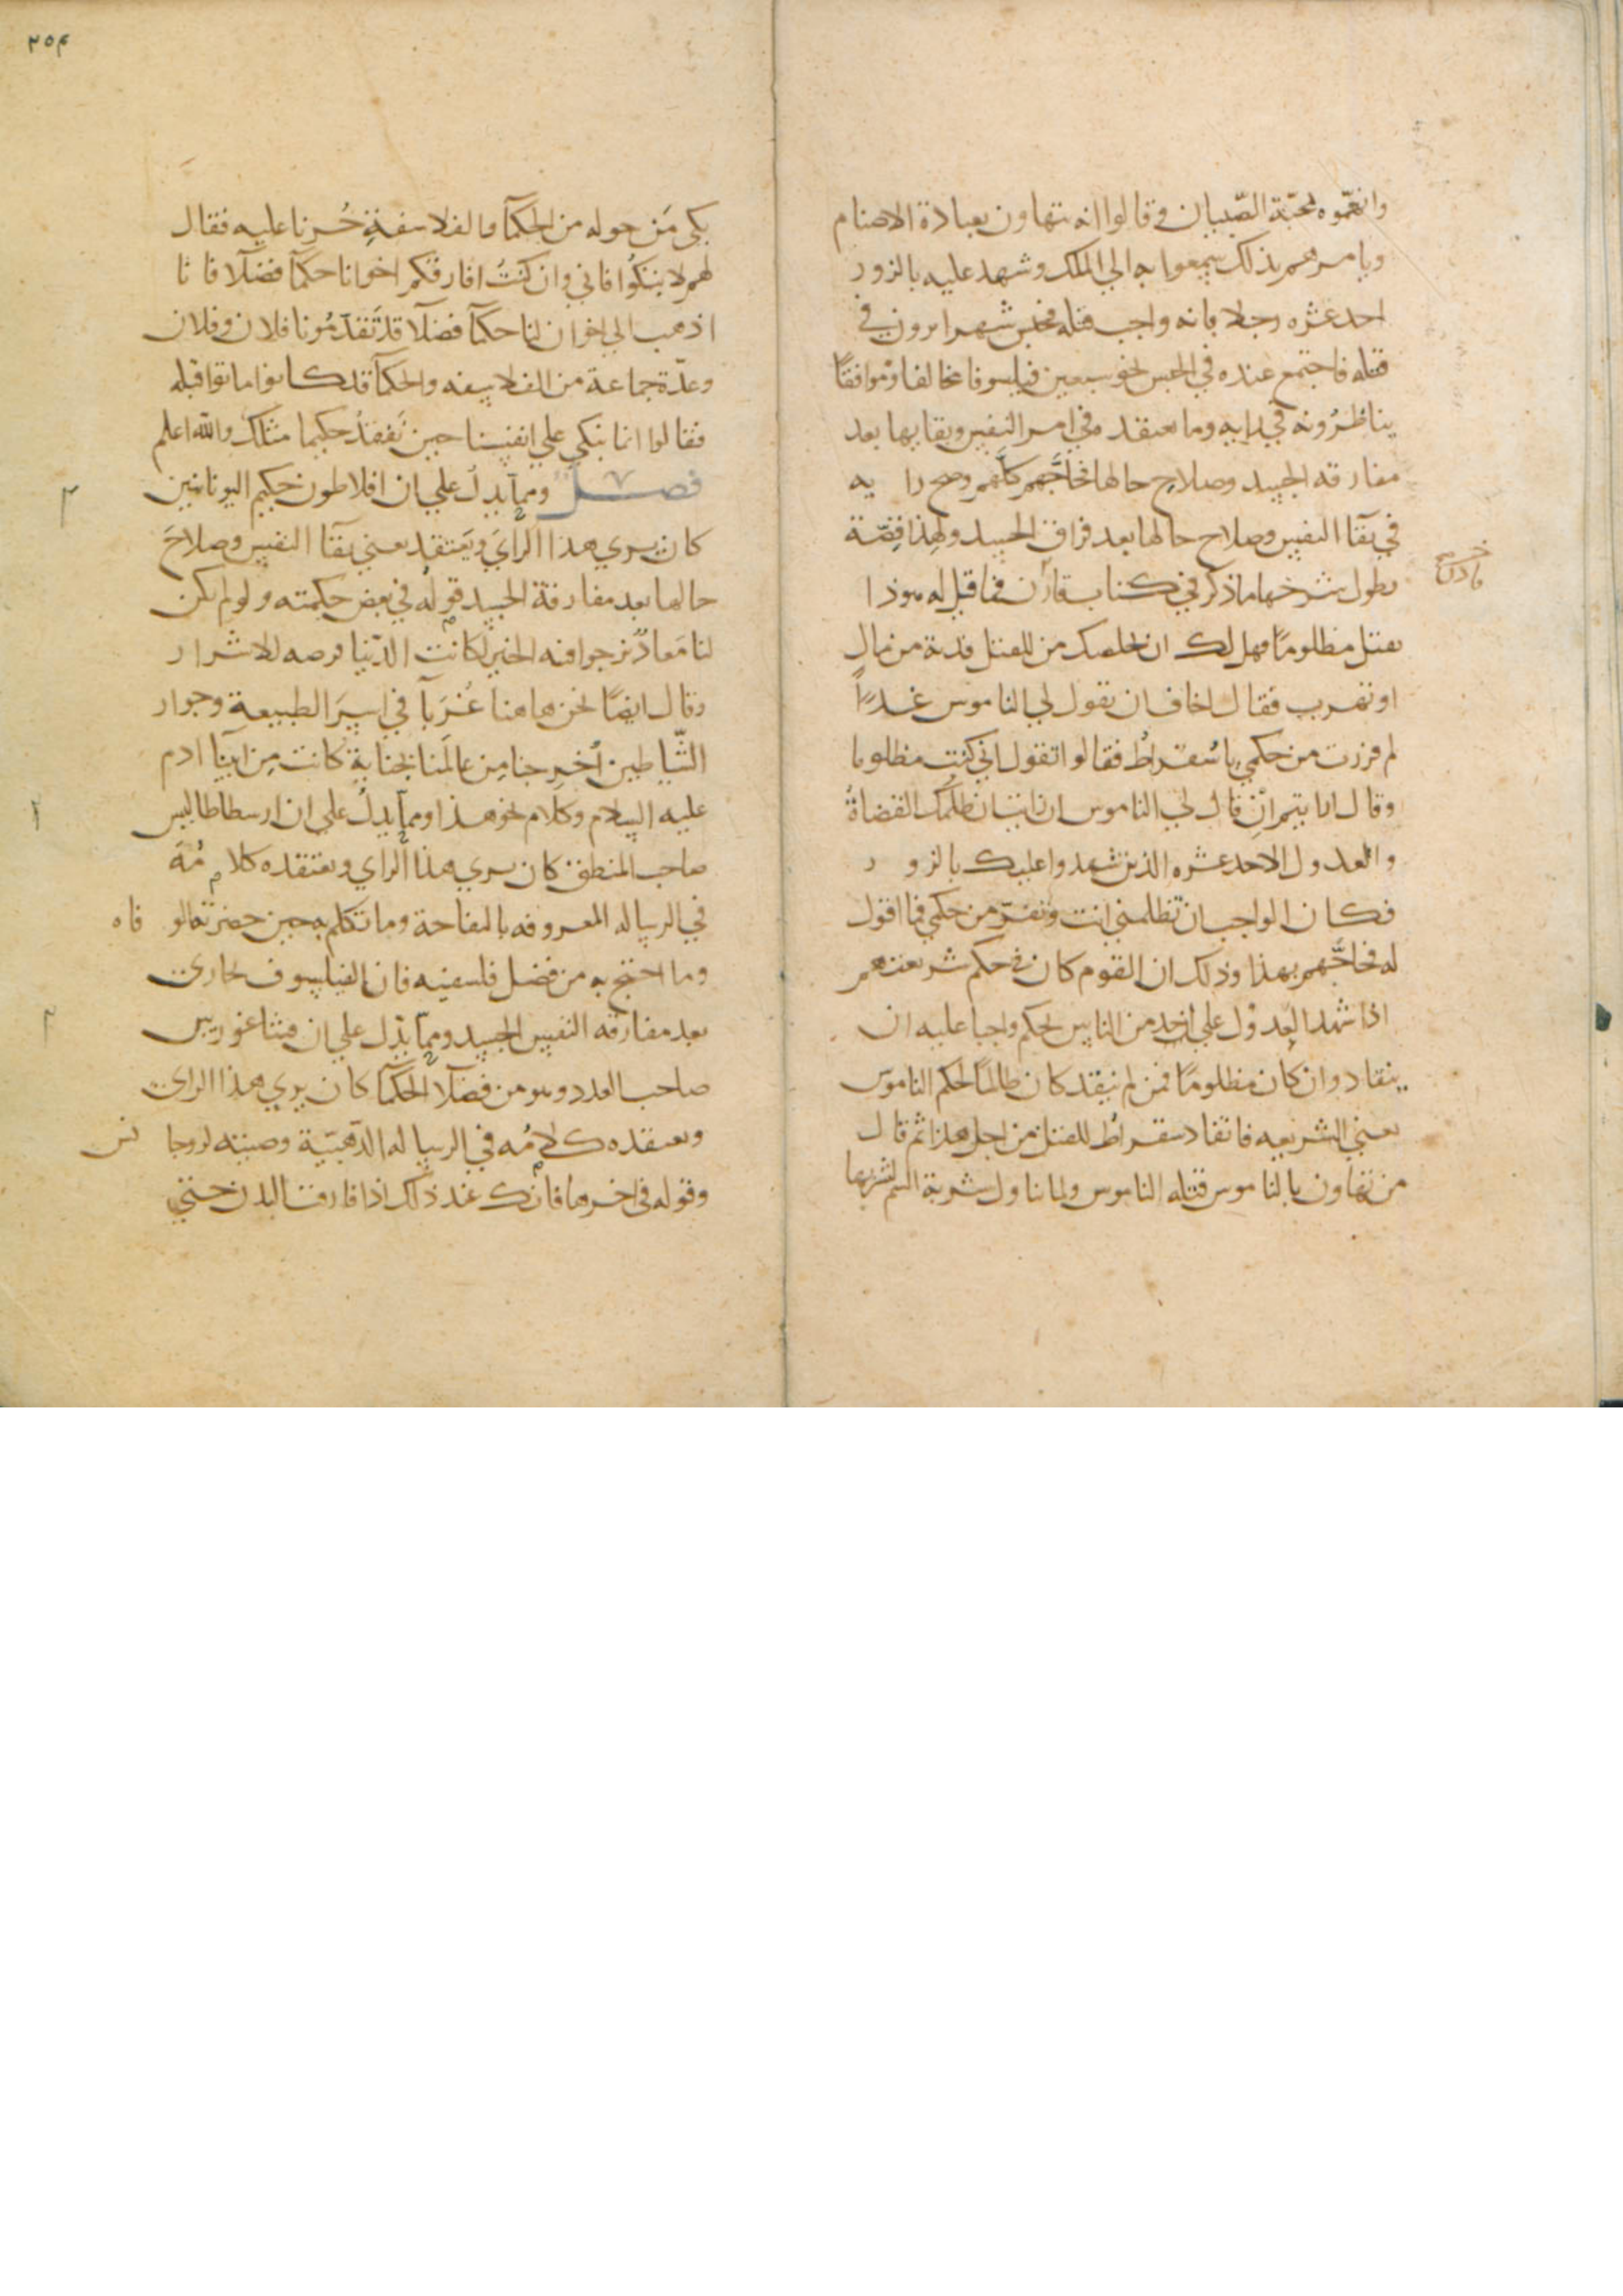 واتهموه بمحبّة الصّبيان و قالوا انه يتهاون بعبادة الاصنام
ويامرهم بذلك سعوا به الي الملك وشهد عليه بالزور
احد عشره رجلا بانه واجب قتله فحبس شهرا يرون في
قتله فاجتمع عنده في الحبس نحو سبعين فيلسوفا مخالفا وموافقًا
يناظرُونه في رايه وما يعتقد في امر النفس وبقايها بعد
مفارقه الجسد وصلاح حالها فحاجَّهم كلّهم وصح را يه
في بقآ النفس وصلاح حالها بعد فراق الجسد ولهذا قصّة
يطول شرحها ما ذكر في كتاب قادن فما قيل له هوذا
تقتل مظلومًا فهل لك ان نخلصك من القتل فدية من مال
او تهرب فقال اخاف ان يقول لي الناموس غدًا
لم فررت من حكمي يا سُقراط فقالوا تقول اني كنت مظلوما
وقال ارايتم ان قال لي الناموس ان انت ان ظلمك القضاةُ
والعدول الاحد عشره الذين شهدوا عليك بالزو ر
فكان الواجب ان تظلمني انت وتفرّ من حكمي فما اقول
له فحاجّهم بهذا وذلك ان القوم كان في حكم شريعتهم
اذا شهد العدول علي احد من الناس بحكم واجبا عليه ان
ينقاد وان كان مظلومًا فمن لم ينقد كان ظالمًا لحكم الناموس
يعني الشريعه فانقاد سقراط للقتل من اجل هذا ثم قال
من تهاون بالناموس قتله الناموس ولما تناول شربة السم لشربها
٢٥٤
بكى مَن حوله من الحكمآ والفلاسفةِ حُزنا عليه فقال
لهم لا تبكُوا فاني وان كنتُ افارقكم اخوانا حكمآ فضلآ فا نا
اذهب الي اخوان لنا حكمآ فضلآ قد تَقدّمُونا فلان وفلان
وعدّة جماعة من الفلاسفه والحكمآ قد كانوا ماتوا قبله
فقالوا انما نبكي علي انفسنا حين نَفقدُ حكيما مثلك والله اعلم
فصــل ومما يدل علي ان افلاطون حكيم اليونانيين
كان يري هذا الراي ويَعتقد يعني بقآ النفس وصلاحَ
حالها بعد مفارقة الجسد قوله في بعض حكمته و لو لم يكن
لنا مَعادٌ نرجوا فيه الخير لكانت الدّنيا فرصه للاشرار
وقال ايضًا نحن هاهنا غُرَبآ في اسرَ الطبيعة وجوار
الشّياطين أُخرِجنا مِن عالَمنا بجناية كانت مِن ابينا ادم
عليه السلام وكلام نحو هذا ومما يدلُ علي ان ارسطاطاليس
صاحب المنطق كان يري هذا الراي ويعتقده كلا مُهَ
في الرساله المعروفه بالتفاحة وما تكلم به حين حضرته الو فاه
وما احتج به من فضل فلسفته فان الفيلسوف يجاري
بعد مفارقه النفس الجسد ومما يدُل علي ان فيثاغوريس
صاحب العدد وهو من فضلآ الحكمآ كان يري هذا الراي
ويعتقده كلامُه في الرساله الذّهبيّة وصيته لروجا نس
وقوله في اخرها فانك عند ذلك اذا فارقت البدن حتي